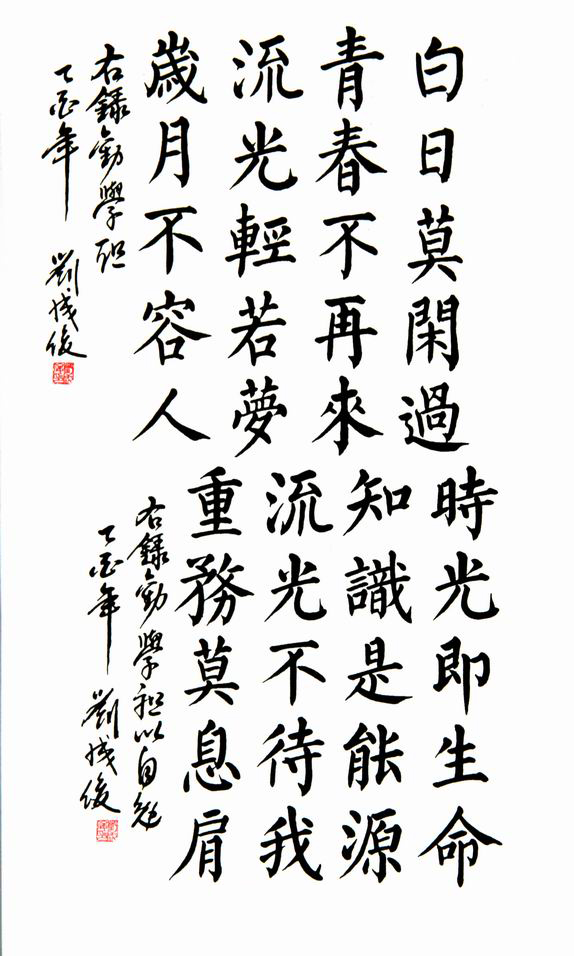 白日莫閑過
青春不再來
流光輕若夢
歲月不容人
右錄勸學
乙酉年 劉成俊
時光即生命
知識是能源
流光不待我
重務莫息肩
右錄勸學以自勉
乙酉年 劉成俊